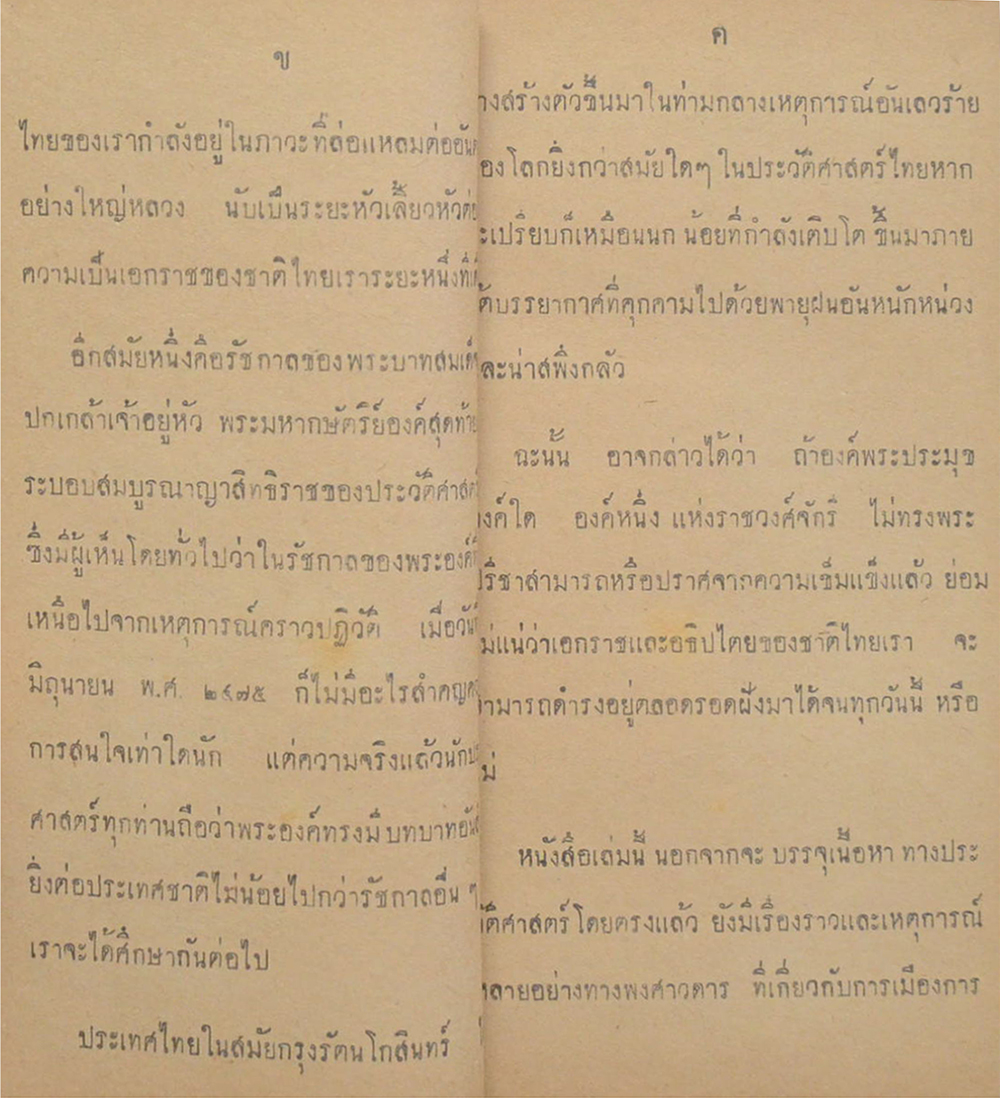 ข
ไทยของเรากำลังอยู่ในภาวะที่ล่อแหลมต่ออัน
อย่างใหญ่หลวง นับเป็นระยะหัวเลี้ยวหัวต่อ
ความเป็นเอกราชของชาติไทยเราระยะหนึ่งที่
อีกสมัยหนึ่งคือรัชกาลของพระบาทสมเด็จ
ปกเกล้าเจ้าอยู่หัว พระมหากษัตริย์องค์สุดท้าย
ระบอบสมบูรณาญาสิทธิราชของประวัติศาสต
ซึ่งมีผู้เห็นโดยทั่วไปว่าในรัชกาลของพระองค์
เหนือไปจากเหตุการณ์คราวปฏิวัติ เมื่อวัน
มิถุนายน พ.ศ. ๒๔๗๕ ก็ไม่มีอะไรสำคญ
การสนใจเท่าใดนัก แต่ความจริงแล้วนัก
ศาสตร์ทุกท่านถือว่าพระองค์ทรงมีบทบาทอัน
ยิ่งต่อประเทศชาติไม่น้อยไปกว่ารัชกาลอื่น ๆ
เราจะได้ศึกษากันต่อไป
ประเทศไทยในสมัยกรุงรัตนโกสินทร์
ค
างสร้างตัวขึ้นมาในท่ามกลางเหตุการณ์อันเลวร้าย
องโลกยิ่งกว่าสมัยใดๆ ในประวัติศาสตร์ไทยหาก
ะเปรียบก็เหมือนนก น้อยที่กำลังเติบโต ขึ้นมาภาย
ต้บรรยากาศที่คุกคามไปด้วยพายุฝนอันหนักหน่วง
ละน่าสพึงกลัว
ฉะนั้น อาจกล่าวได้ว่า ถ้าองค์พระประมุข
งค์ใด องค์หนึ่ง แห่งราชวงศ์จักรี ไม่ทรงพระ
ปรีชาสามารถหรือปราศจากความเข็มแข็งแล้ว ย่อม
ม่แน่ว่าเอกราชและอธิปไตยของชาติไทยเรา จะ
ามารถดำรงอยู่ตลอดรอดฝั่งมาได้จนทุกวันนี้ หรือ
ม่
หนังสือเล่มนี้ นอกจากจะ บรรจุเนื้อหา ทางประ
ัติศาสตร์โดยตรงแล้ว ยังมีเรื่องราวและเหตุการณ์
ลายอย่างทางพงศาวดาร ที่เกี่ยวกับการเมืองการ